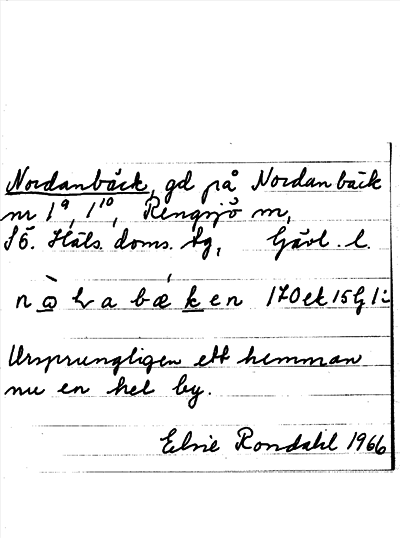 Nordanbäck, gd på Nordanbäck
nr 1⁹, 1¹⁰, Rengsjö sn,
Sö. Häls. doms. tg, Gävl. l.
Ursprungligen ett hemman
nu en hel by.
Elsie Rondahl 1966